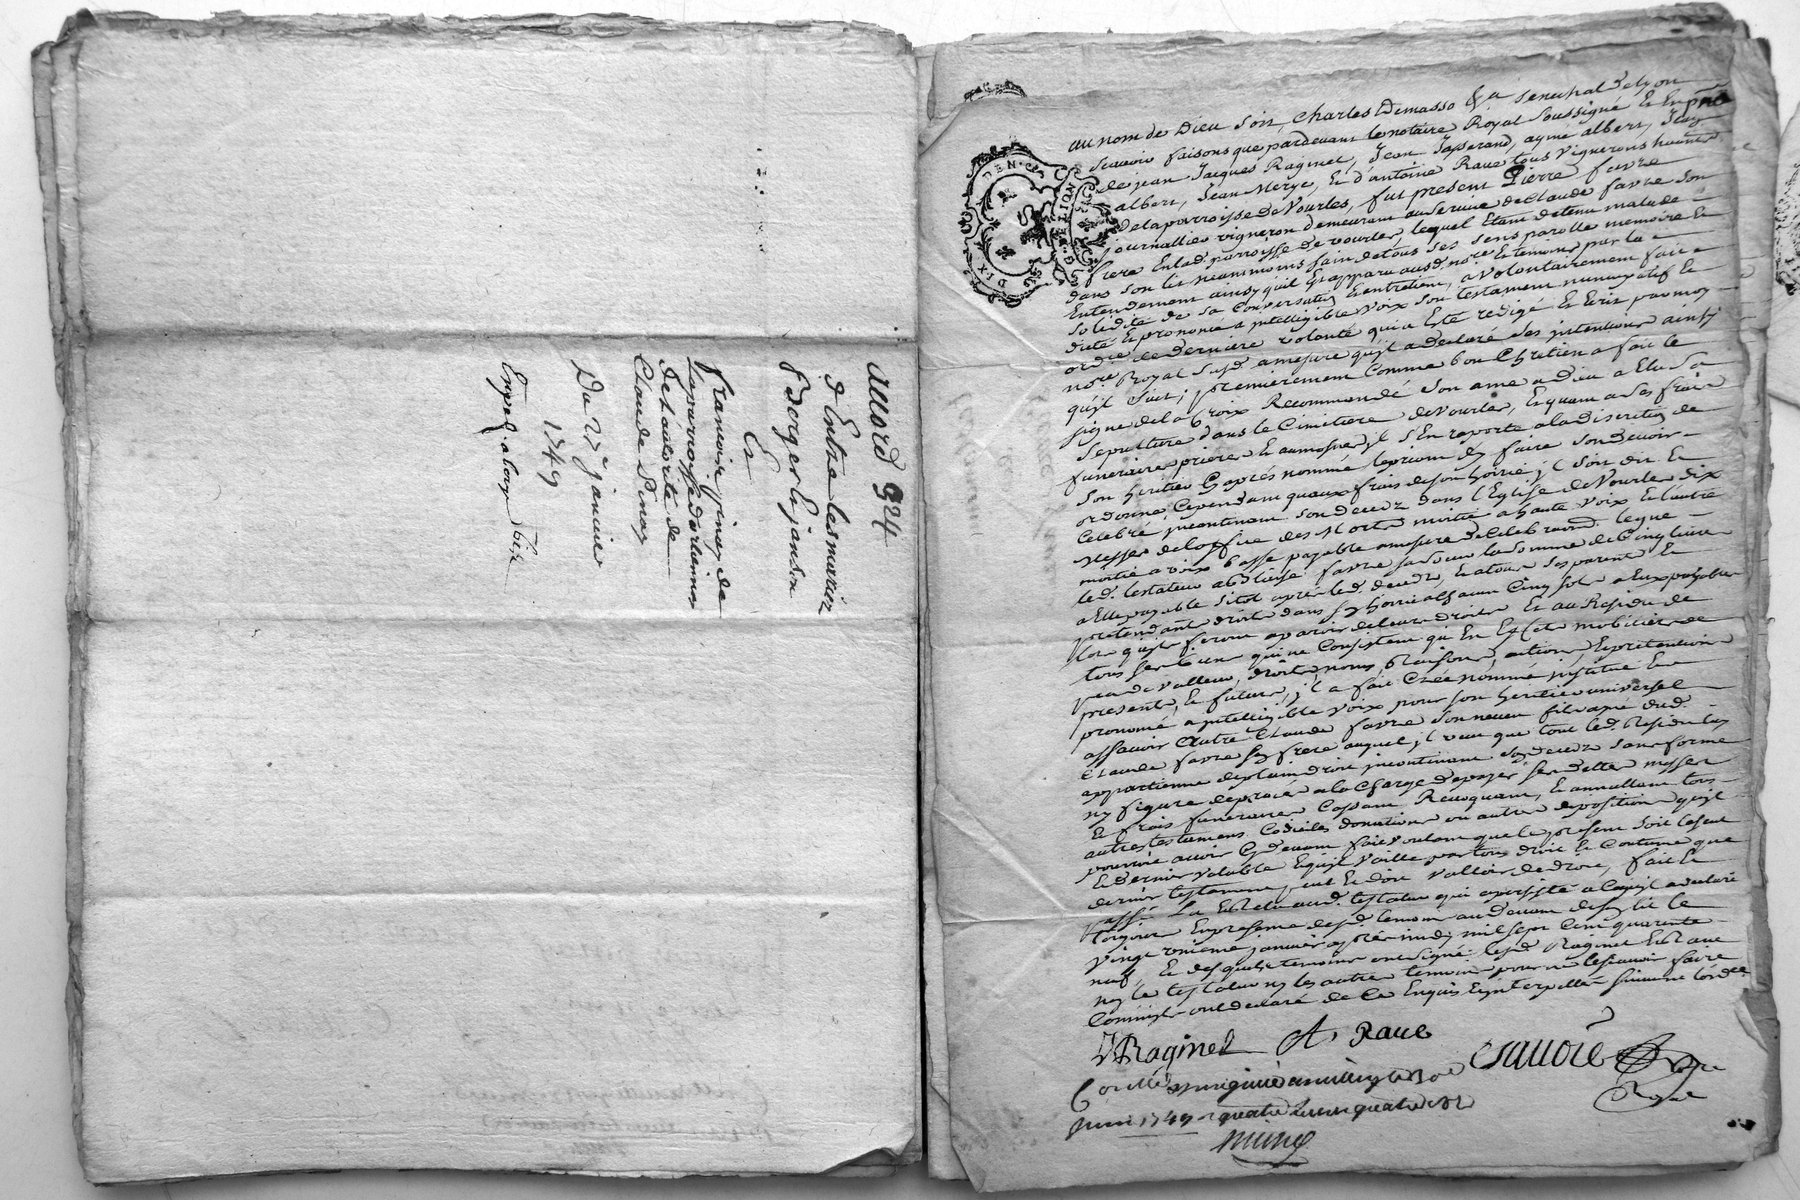 accord 924
d'Entre les mariez
Berger & janson
Et
francoise pinez de
la parroisse d'orlienas
de l'autorité de
Claude Pinay
Du 27 janvier
1749
Exped.
DIX DEN.
au nom de Dieu soit, Charles Demasso &a senechal de Lyon
scavoir faisons que pardevant le notaire Royal soussigné et En pnce
de jean Jacques Raginel, Jean Jasserand, aymé albert, Jean
albert, Jean Merge, et d'antoine Raue tous vignerons habitants
de la parroisse de Vourles, fut present Pierre favre
journallier vigneron demeurant au service de Claude favre son
frere En lad. parroisse de vourles, lequel Etant detenu malade
dans son lit neanmoins sain de tous ses sens parolle memoire Et
Entendement ainsy qu'il Est apparu aud. nore Et temoins par la
solidité de sa Conversation Et entretien, a volontairement fait
dicté Et prononcé a intelligible voix son testament nuncupatif Et
ordce de derniere volonté, qui a Esté redigé Et Ecrit par moy
nore Royal susd. a mesure qu'il a declaré ses intentions ainsy
qu'il suit; premierement Comme bon Chretien a fait le
signe de la Croix Recommandé son ame a Dieu a Elu sa
sepulture dans le Cimitiere de Vourles, Et quant a ses frais
funeraires prieres Et aumosnes il s'En raporte a la discretion de
son heritier Cy aprés nommé le priant d'y faire son devoir
ordonne Cependant qu'aux frais de son hoirie, il soit dit Et
Celebré incontinent son decez dans l'Eglise de Vourles dix
Messes de l'office des Morts moitié a haute voix Et l'autre
moitié a voix basse payable a mesure de Celebraond. legue
led. testateur a favre sa soeur la somme de Cinq livres
a Elle payable sitot aprés led. decez, Et a tous ses parents Et
pretendants droits dans son hoirie a chacun Cinq sols a Eux payables
lors qu'ils feront aparoir de leurs droits Et au Residu de
tous ses biens qui ne Consistent qu'En Effets mobiliers de
peu de valleur, droits, noms, Raisons, actions, Et pretentions
presents Et futurs, il a fait Créé nommé institué Et
prononcé a intelligible voix pour son heritier universel
assavoir autre Claude favre son neveu fils aisné dud.
Claude favre son frere auquel il veut que tout led. Residu luy
appartienne de plein droit incontinent son decez sans forme
ny figure de proces a la Charge de payer ses dettes messes
Et frais funeraires Cassant Revoquant, Et annullant tous
autres testaments Codiciles donations ou autre disposition qu'il
pourroit avoir Cy devant fait voulant que le present soit le seul
Et dernier valable Et qu'il vaille par tous droit Et Coutume que
dernier testament peut Et doit valloir de droit, fait Et
passé Lu Et Relu aud. testateur qui a persisté a ce qu'il a declaré
toujours En presence desd. temoins au devant de le
vingt troisieme janvier aprés midy mil sept Cent quarante
neuf, Et desquels temoins ont signé lesd. Raginel Et Raue
ny le testateur ny les autres temoins pour ne le scavoir faire
Comme ils ont declaré de Ce Enquis Et interpellés suivant l'ordce
J Raginel A, Raue Savoie
nore
Royal
Controllé le
1749